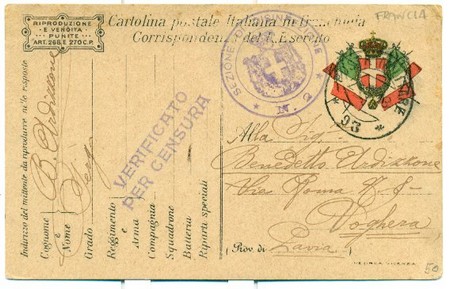 RIPRODUZIONE
E VENDITA
PUNITE
ART. 268 E 270 C.P.
FRANCIA
Cartolina postale Italiana in franchigia
Corrispondenza del R. Esercito
SEZIONE
93
VERIFICATO
PER CENSURA
Indirizzo del mittente da riprodurre nelle risposte
Cognome
e
Nome
Grado
Reggimento
e
Arma
Compagnia
Squadrone
Batteria
Riparti speciali
Alla Sig.
Benedetto Ardizzone
Via Roma N. 8
Voghera
Prov. di Pavia
50